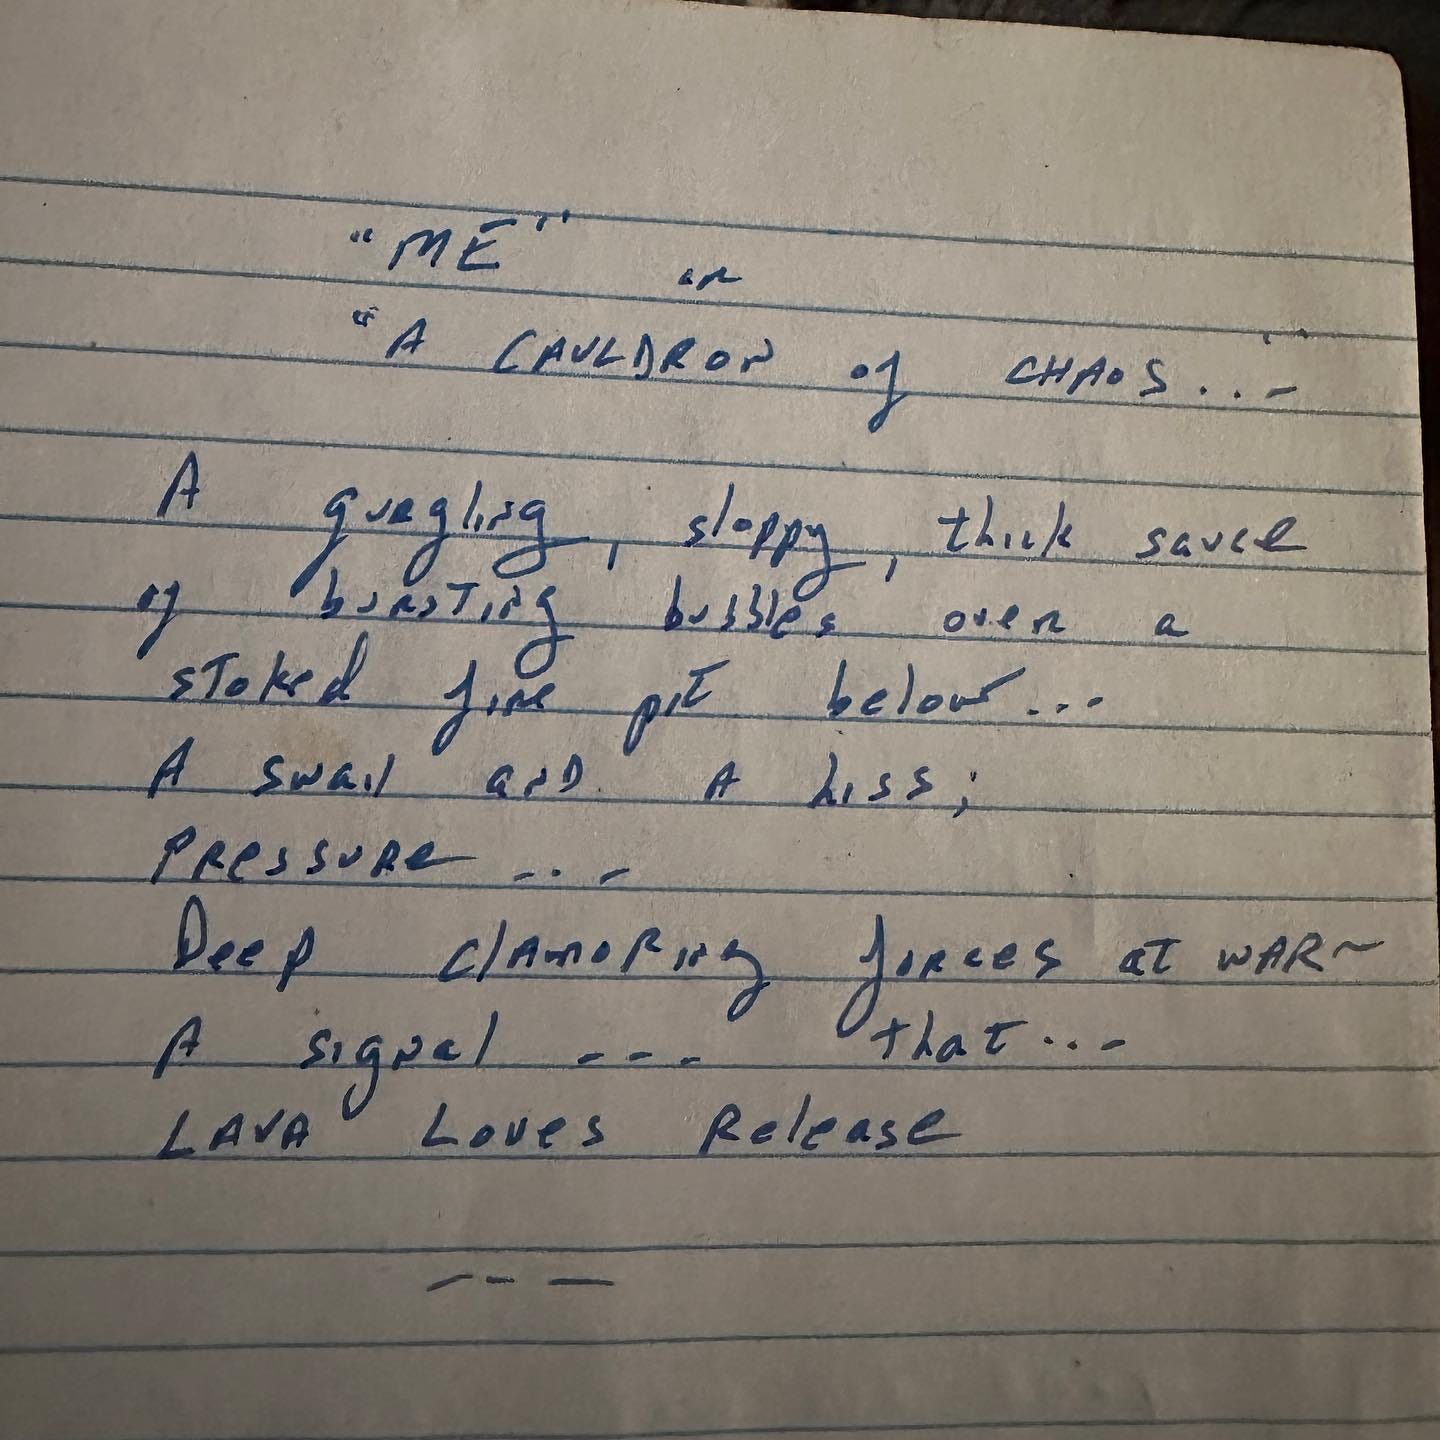 "ME" or
"A CAULDRON of CHAOS..."
A gurgling, sloppy, thick sauce
of bursting bubbles over a
stoked fire pit below...
A swail and A hiss;
Pressure...
Deep clamoring forces at WAR~
A signal --- that...
LAVA Loves Release
---